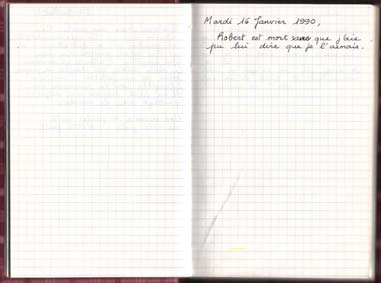 Mardi 16 Janvier 1990,
Robert est mort sans que j'aie
pu lui dire que je l'aimais.